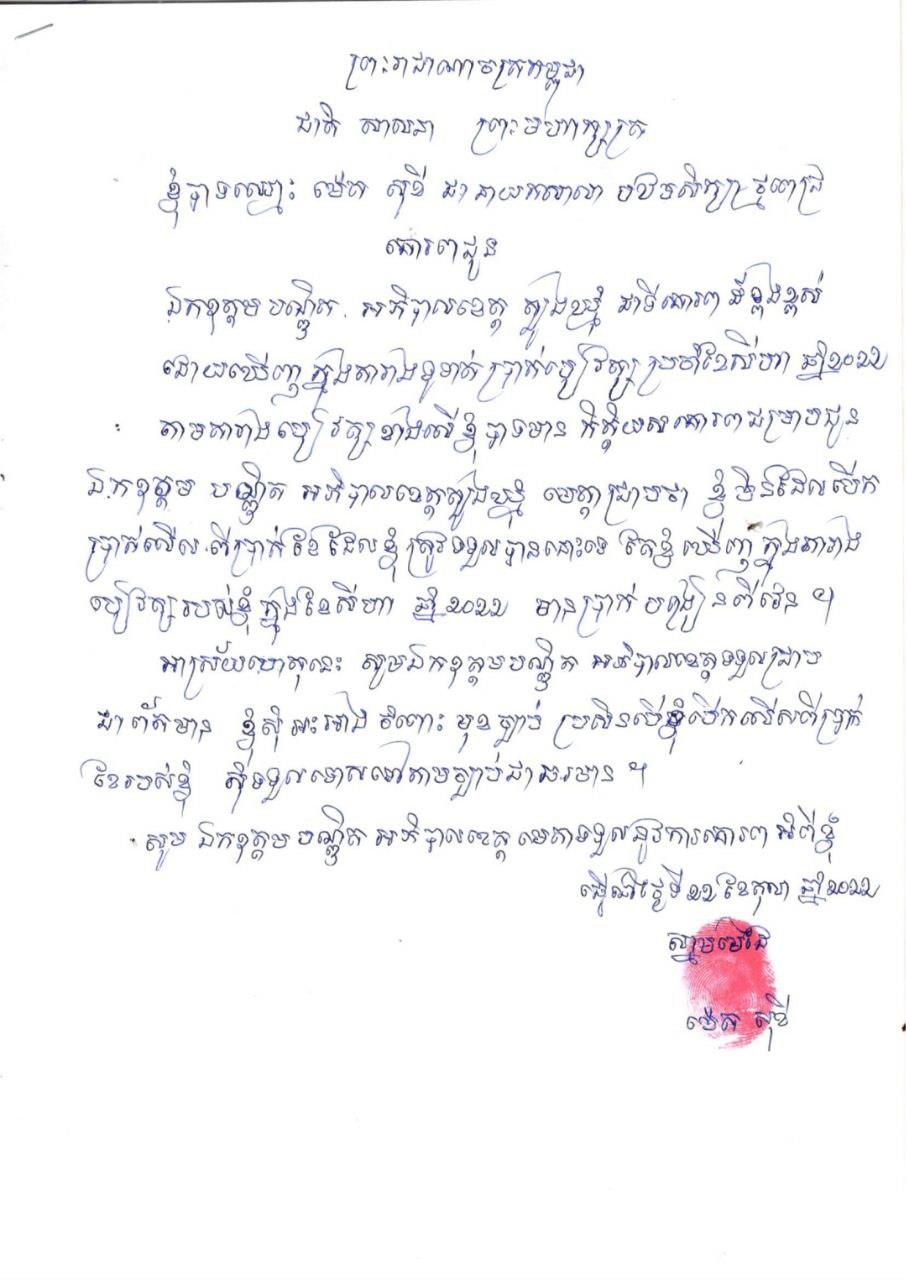 ព្រះរាជាណាចក្រកម្ពុជា
ជាតិ សាសនា ព្រះមហាក្សត្រ
ខ្ញុំបាទឈ្មោះ ម៉េត សុខី ជានាយកសាលា បឋមសិក្សាថ្មពេជ្រ
គោរពជូន
ឯកឧត្តមបណ្ឌិត អភិបាលខេត្ត ត្បូងឃ្មុំ ជាទីគោរព ដ៏ខ្ពង់ខ្ពស់
ដោយឃើញក្នុងតារាងទូទាត់ប្រាក់បៀវត្ស ប្រចាំខែសីហា ឆ្នាំ២០២២
តាមតារាងបៀវត្សខាងលើខ្ញុំបាទមាន កិត្តិយសគោរពជម្រាបជូន
ឯកឧត្តម បណ្ឌិត អភិបាលខេត្តត្បូងឃ្មុំ មេត្តាជ្រាបថា ខ្ញុំមិនដែលបើក
ប្រាក់លើស ពីប្រាក់ខែដែលខ្ញុំត្រូវទទួលបាននោះទេ តែខ្ញុំឃើញក្នុងតារាង
បៀវត្សរបស់ខ្ញុំក្នុងខែសីហា ឆ្នាំ២០២២ មានប្រាក់ បង្រៀនពីរវេន ។
អាស្រ័យហេតុនេះ សូមឯកឧត្តមបណ្ឌិត អភិបាលខេត្តទទួលជ្រាប
ជាព័ត៌មាន ខ្ញុំសុំអះអាង ចំពោះ មុខច្បាប់ ប្រសិនបើខ្ញុំបើកលើសពីប្រាក់
ខែរបស់ខ្ញុំ សុំទទួលទោសទៅតាមច្បាប់ជាធរមាន ។
សូម ឯកឧត្តមបណ្ឌិត អភិបាលខេត្ត មេតាទទួលនូវការគោរព អំពីខ្ញុំ
ធ្វើនៅថ្ងៃទី២១ ខែតុលា ឆ្នាំ២០២២
ស្នាមមេដៃ
ម៉េត សុខី